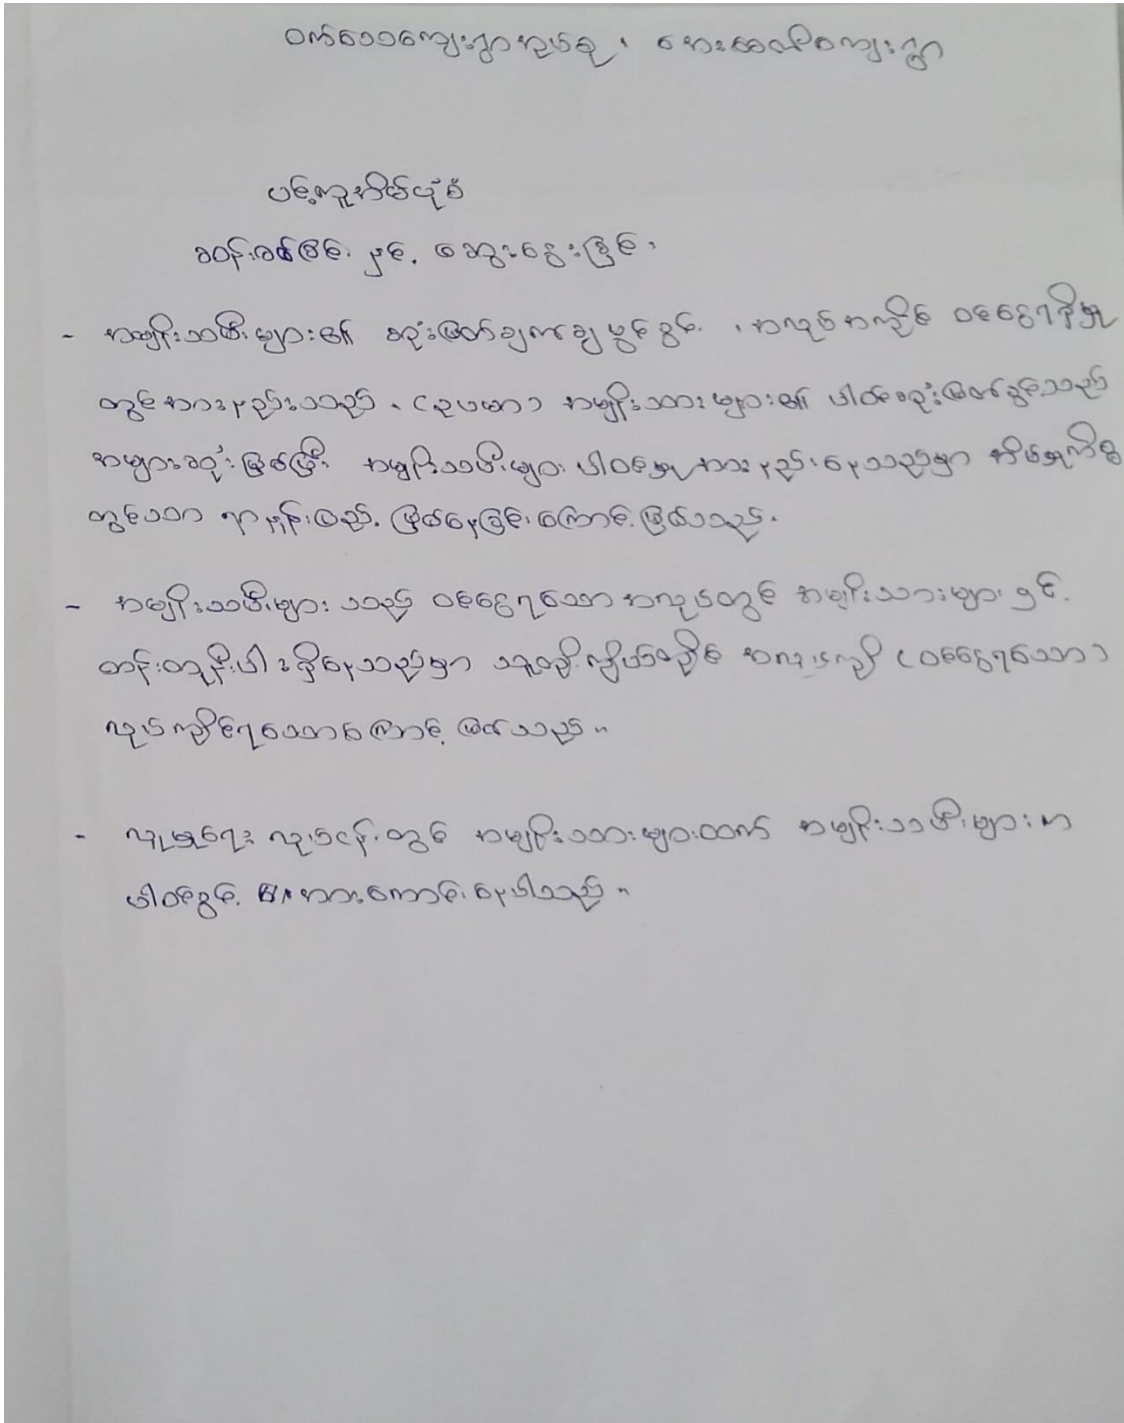 ဝက်သေကျေးရွာအုပ်စု ၊ အေးစေတီကျေးရွာ
ပင့်ကူအိမ်ပုံစံ
ခွဲခြမ်းစိတ်ဖြာခြင်း နှင့် ဆွေးနွေးခြင်း
- အမျိုးသမီးများ၏ ဆုံးဖြတ်ချက်ချမှုပိုင်ခွင့် ၊ အလုပ်အကိုင် ဝင်ငွေရရှိမှု
တွင်အားနည်းသည်၊ (ဥပမာ) အမျိုးသားများ၏ ပါဝင်ဆုံးဖြတ်ခွင့်သည်
အများဆုံးဖြစ်ပြီး အမျိုးသမီးများ ပါဝင်မှုအားနည်းနေသည်မှာ အိမ်မှုကိစ္စ
တွင်သာ ရာနှုန်းပြည့် ဖြစ်နေခြင်းကြောင့်ဖြစ်သည်။
- အမျိုးသမီးများ သည် ဝင်ငွေရသော အလုပ်တွင် အမျိုးသားများနှင့်
တန်းတူနီးပါးရှိနေသည်မှာ သူတို့ကိုယ်တိုင် အလုပ်ကို (ဝင်ငွေရသော)
လုပ်ကိုင်ရသောကြောင့် ဖြစ်သည်။
- လူမှုရေး လုပ်ငန်းတွင် အမျိုးသားများထက် အမျိုးသမီးများက
ပါဝင်ခွင့် အားကောင်းနေပါသည်။